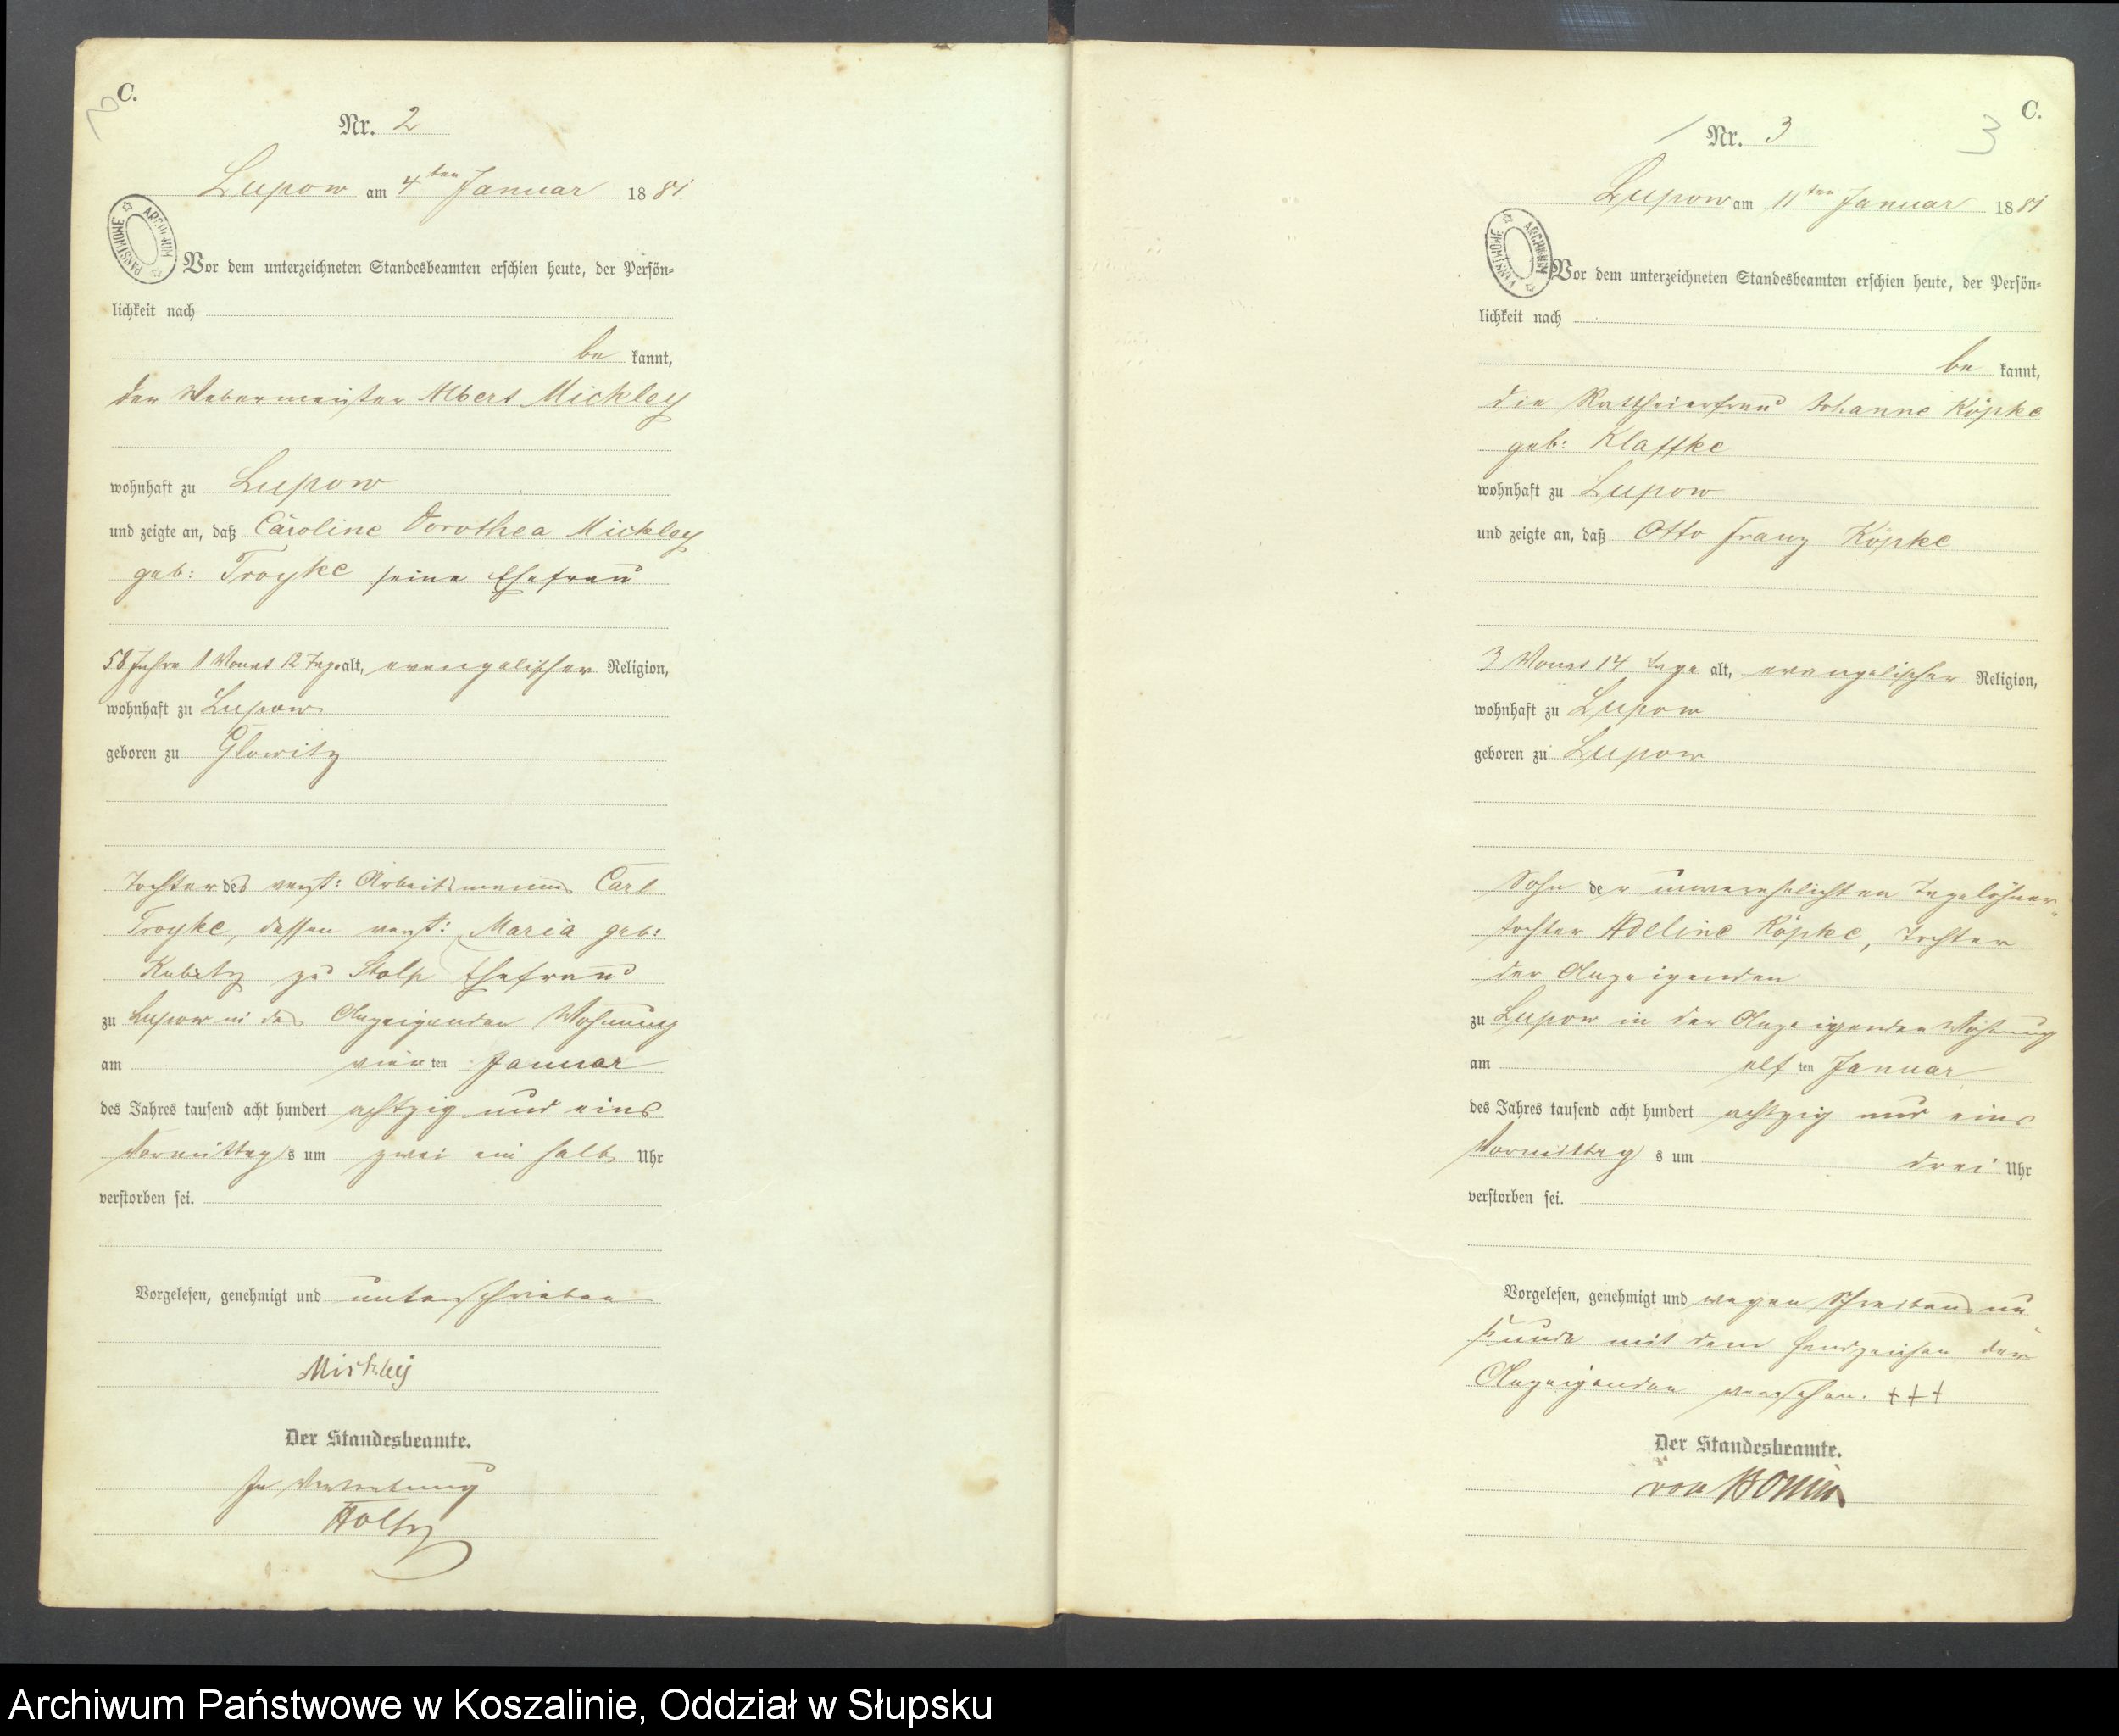 C.
Nr. 2
Lupow am 4ten Januar 1881
ARCHIWUM PAŃSTWOWE
Vor dem unterzeichneten Standesbeamten erschien heute, der Persön=
lichkeit nach
be kannt,
der Webermeister Albert Mickley
wohnhaft zu Lupow
und zeigte an, daß Caroline Dorothea Mickley
geb: Troyke seine Ehefrau
58 Jahre 1 Monat 12 Tage alt, evangelischer Religion,
wohnhaft zu Lupow
geboren zu Glowitz
Tochter des verst: Arbeitsmanns Carl
Troyke, dessen verst: Maria geb:
zu Stolp Ehefrau
zu Lupow in des Anzeigenden Wohnung
am vierten Januar
des Jahres tausend acht hundert achtzig und eins
Vormittags um zwei ein halb Uhr
verstorben sei.
Vorgelesen, genehmigt und unterschrieben
Mickley
Der Standesbeamte.
In Vertretung
Holtz
C.
3
Nr. 3
Lupow am 11ten Januar 1881
ARCHIWUM PAŃSTWOWE
Vor dem unterzeichneten Standesbeamten erschien heute, der Persön=
lichkeit nach
be kannt,
die Johanne Köpke
geb: Klaffke
wohnhaft zu Lupow
und zeigte an, daß Otto Franz Köpke
3 Monat 14 Tage alt, evangelischer Religion,
wohnhaft zu Lupow
geboren zu Lupow
Sohn der unverehelichten Tagelöhner-
tochter Adeline Köpke, Tochter
der Anzeigenden
zu Lupow in der Anzeigenden Wohnung
am elf ten Januar
des Jahres tausend acht hundert achtzig und eins
Vormittag s um drei Uhr
verstorben sei.
Vorgelesen, genehmigt und wegen Schreibensun-
kunde mit dem Handzeichen der
Anzeigenden versehen. +++
Der Standesbeamte.
von Bonin
Archiwum Państwowe w Koszalinie, Oddział w Słupsku